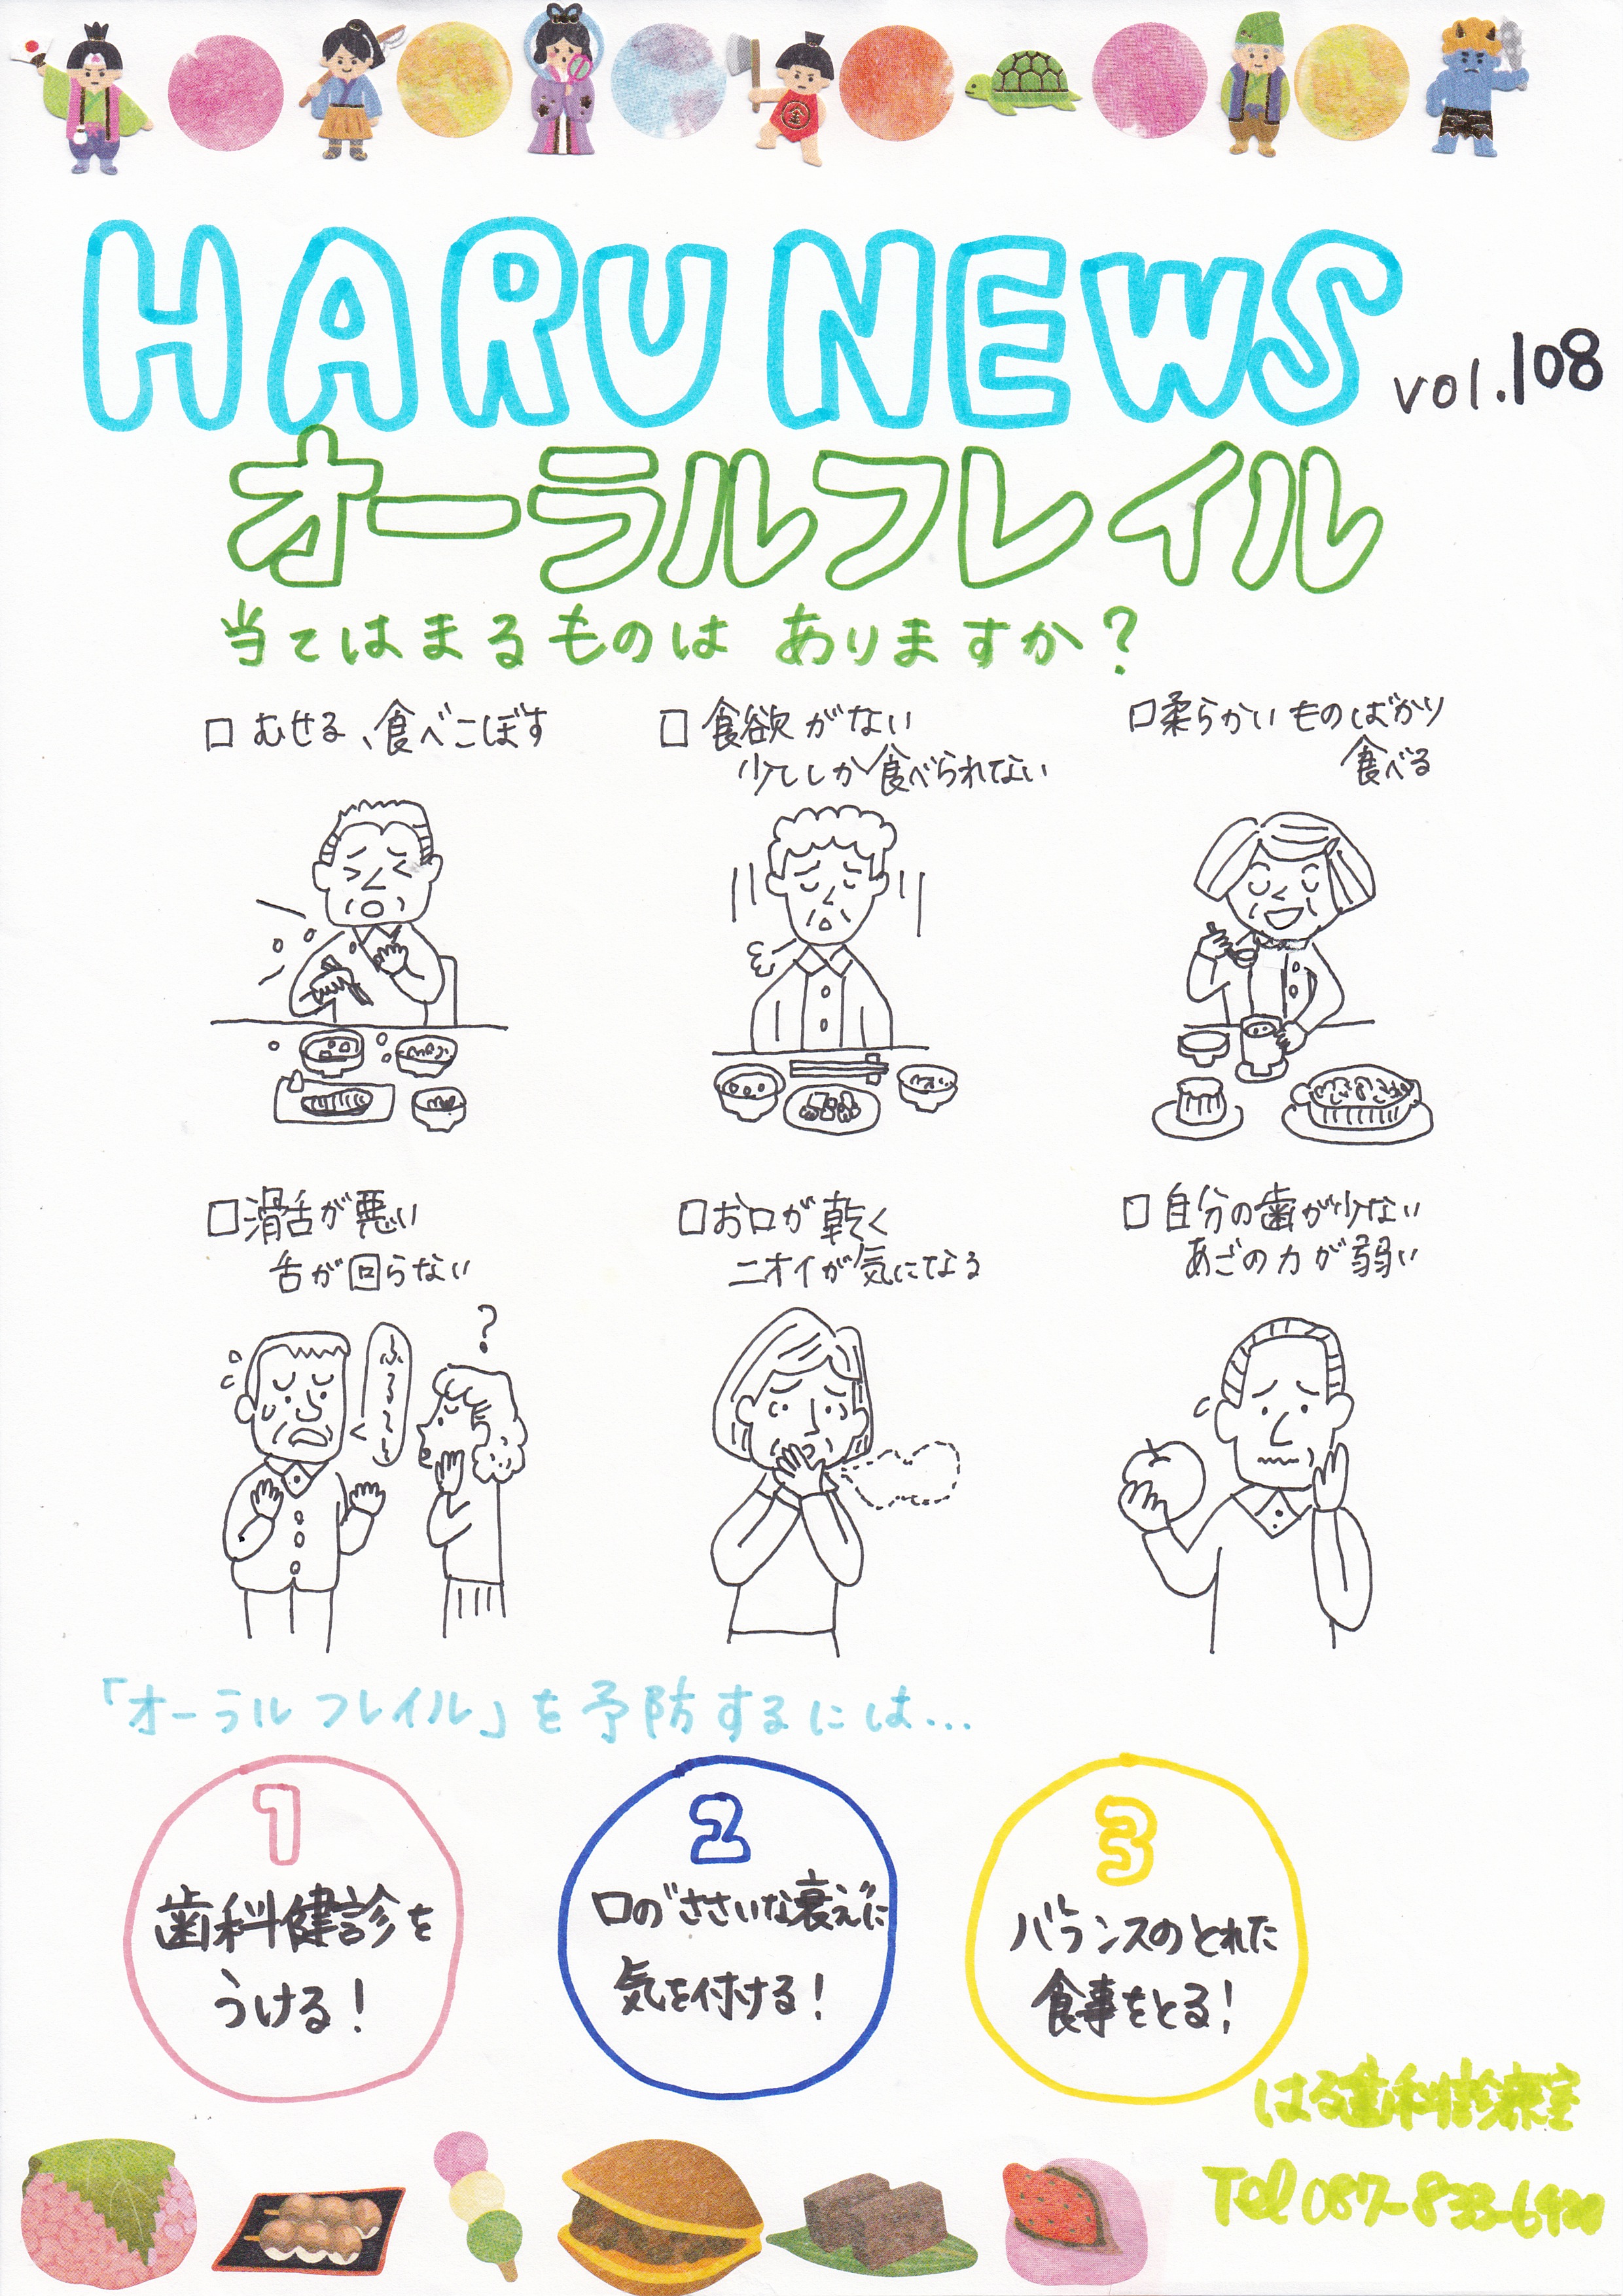 HARU NEWS vol.108
オーラルフレイル
当てはまるものは ありますか?
□ むせる、食べこぼす
□ 食欲がない
少ししか食べられない
□ 柔らかいものばかり
食べる
□ 滑舌が悪い
舌が回らない
□ お口が乾く
ニオイが気になる
□ 自分の歯が少ない
あごの力が弱い
?
「オーラルフレイル」を予防するには...
1
歯科健診を
うける!
2
口の"ささいな衰え"に
気を付ける!
3
バランスのとれた
食事をとる!
はる歯科診療室
Tel 087-833-6480